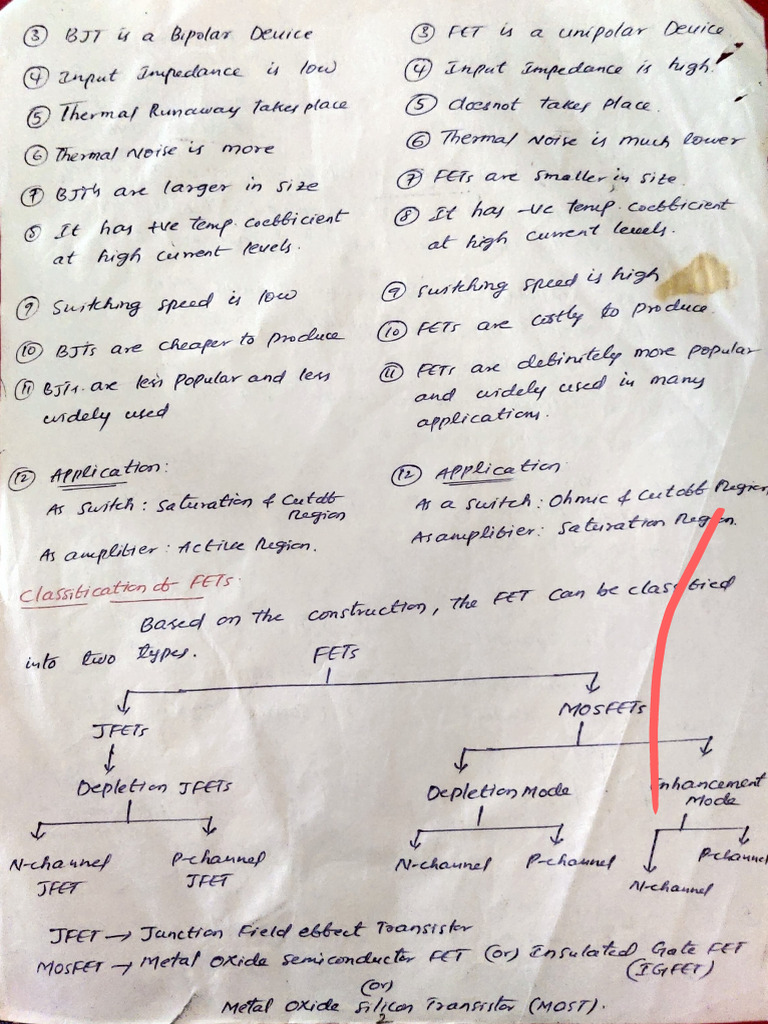 ③ BJT is a Bipolar Device
④ Input Impedance is low
⑤ Thermal Runaway takes place
⑥ Thermal Noise is more
⑦ BJTs are larger in size
⑧ It has +ve temp. coefficient
at high current levels.
⑨ Switching speed is low
⑩ BJTs are cheaper to produce
⑪ BJTs are less popular and less
widely used
⑫ Application:
As switch: Saturation & Cutoff
Region
As amplifier: Active Region.
③ FET is a unipolar Device.
④ Input Impedance is high.
⑤ doesnot takes place.
⑥ Thermal Noise is much lower
⑦ FETs are smaller in size.
⑧ It has -ve temp. coefficient
at high current levels.
⑨ Switching speed is high
⑩ FETs are costly to produce.
⑪ FETs are definitely more popular
and widely used in many
applications.
⑫ Application
As a switch: Ohmic & Cutoff Region
As amplifier: Saturation Region.
Classification of FETs.
Based on the construction, the FET can be classified
into two types.
FETs
JFETs
MOSFETs
Depletion JFETs
Depletion Mode
Enhancement
Mode
N-channel
JFET
P-channel
JFET
N-channel
P-channel
N-channel
P-channel
JFET → Junction Field effect Transistor
MOSFET → Metal Oxide Semiconductor FET (or) Insulated Gate FET
(IGFET)
(or)
Metal Oxide Silicon Transistor (MOST).
2